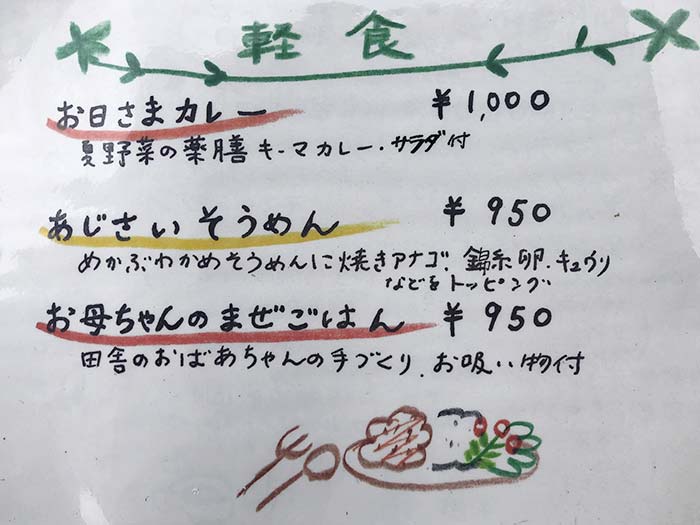 軽食
お日さまカレー ¥1,000
夏野菜の薬膳キーマカレー・サラダ付
あじさいそうめん ¥950
めかぶわかめそうめんに焼きアナゴ、錦糸卵・キュウリ
などをトッピング
お母ちゃんのまぜごはん ¥950
田舎のおばあちゃんの手づくり、お吸い物付